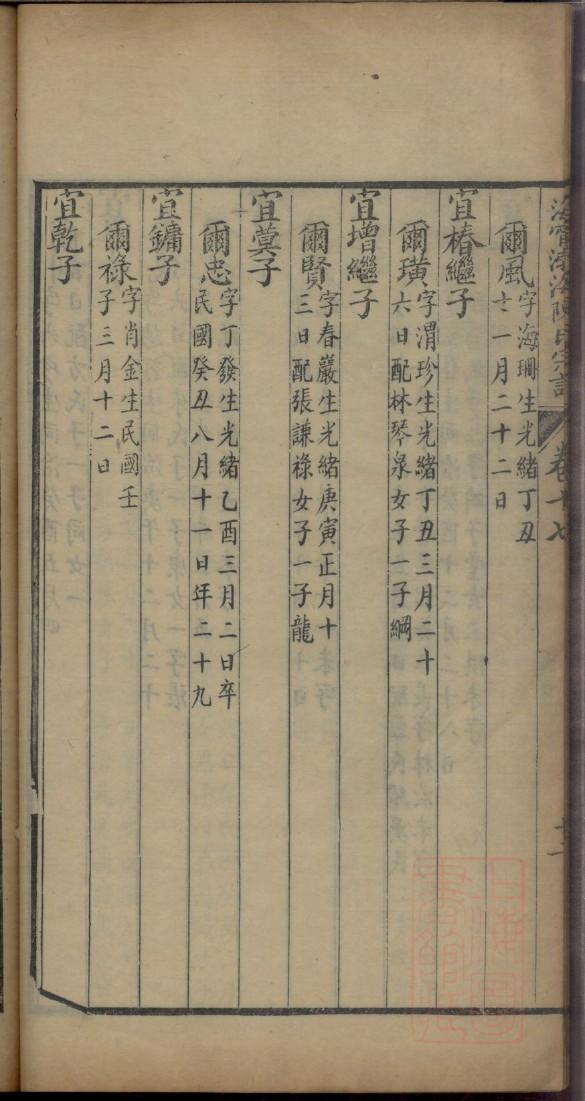 海寧渤海陳氏宗譜 卷十七
爾風字海珊生光緒丁丑
十一月二十二日
宜椿繼子
爾璜字渭珍生光緒丁丑三月二十
六日配林琴泉女子一子綱
宜增繼子
爾賢字春巖生光緒庚寅正月十
三日配張謙祿女子一子龍
宜蓂子
爾忠字丁發生光緒乙酉三月二日卒
民國癸丑八月十一日年二十九
宜鏞子
爾祿字肖金生民國壬
子三月十二日
宜乾子